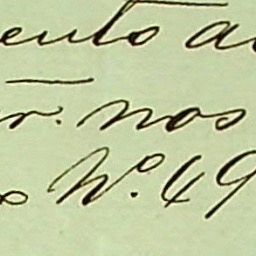 ento a
r. nos
o Nº. 49